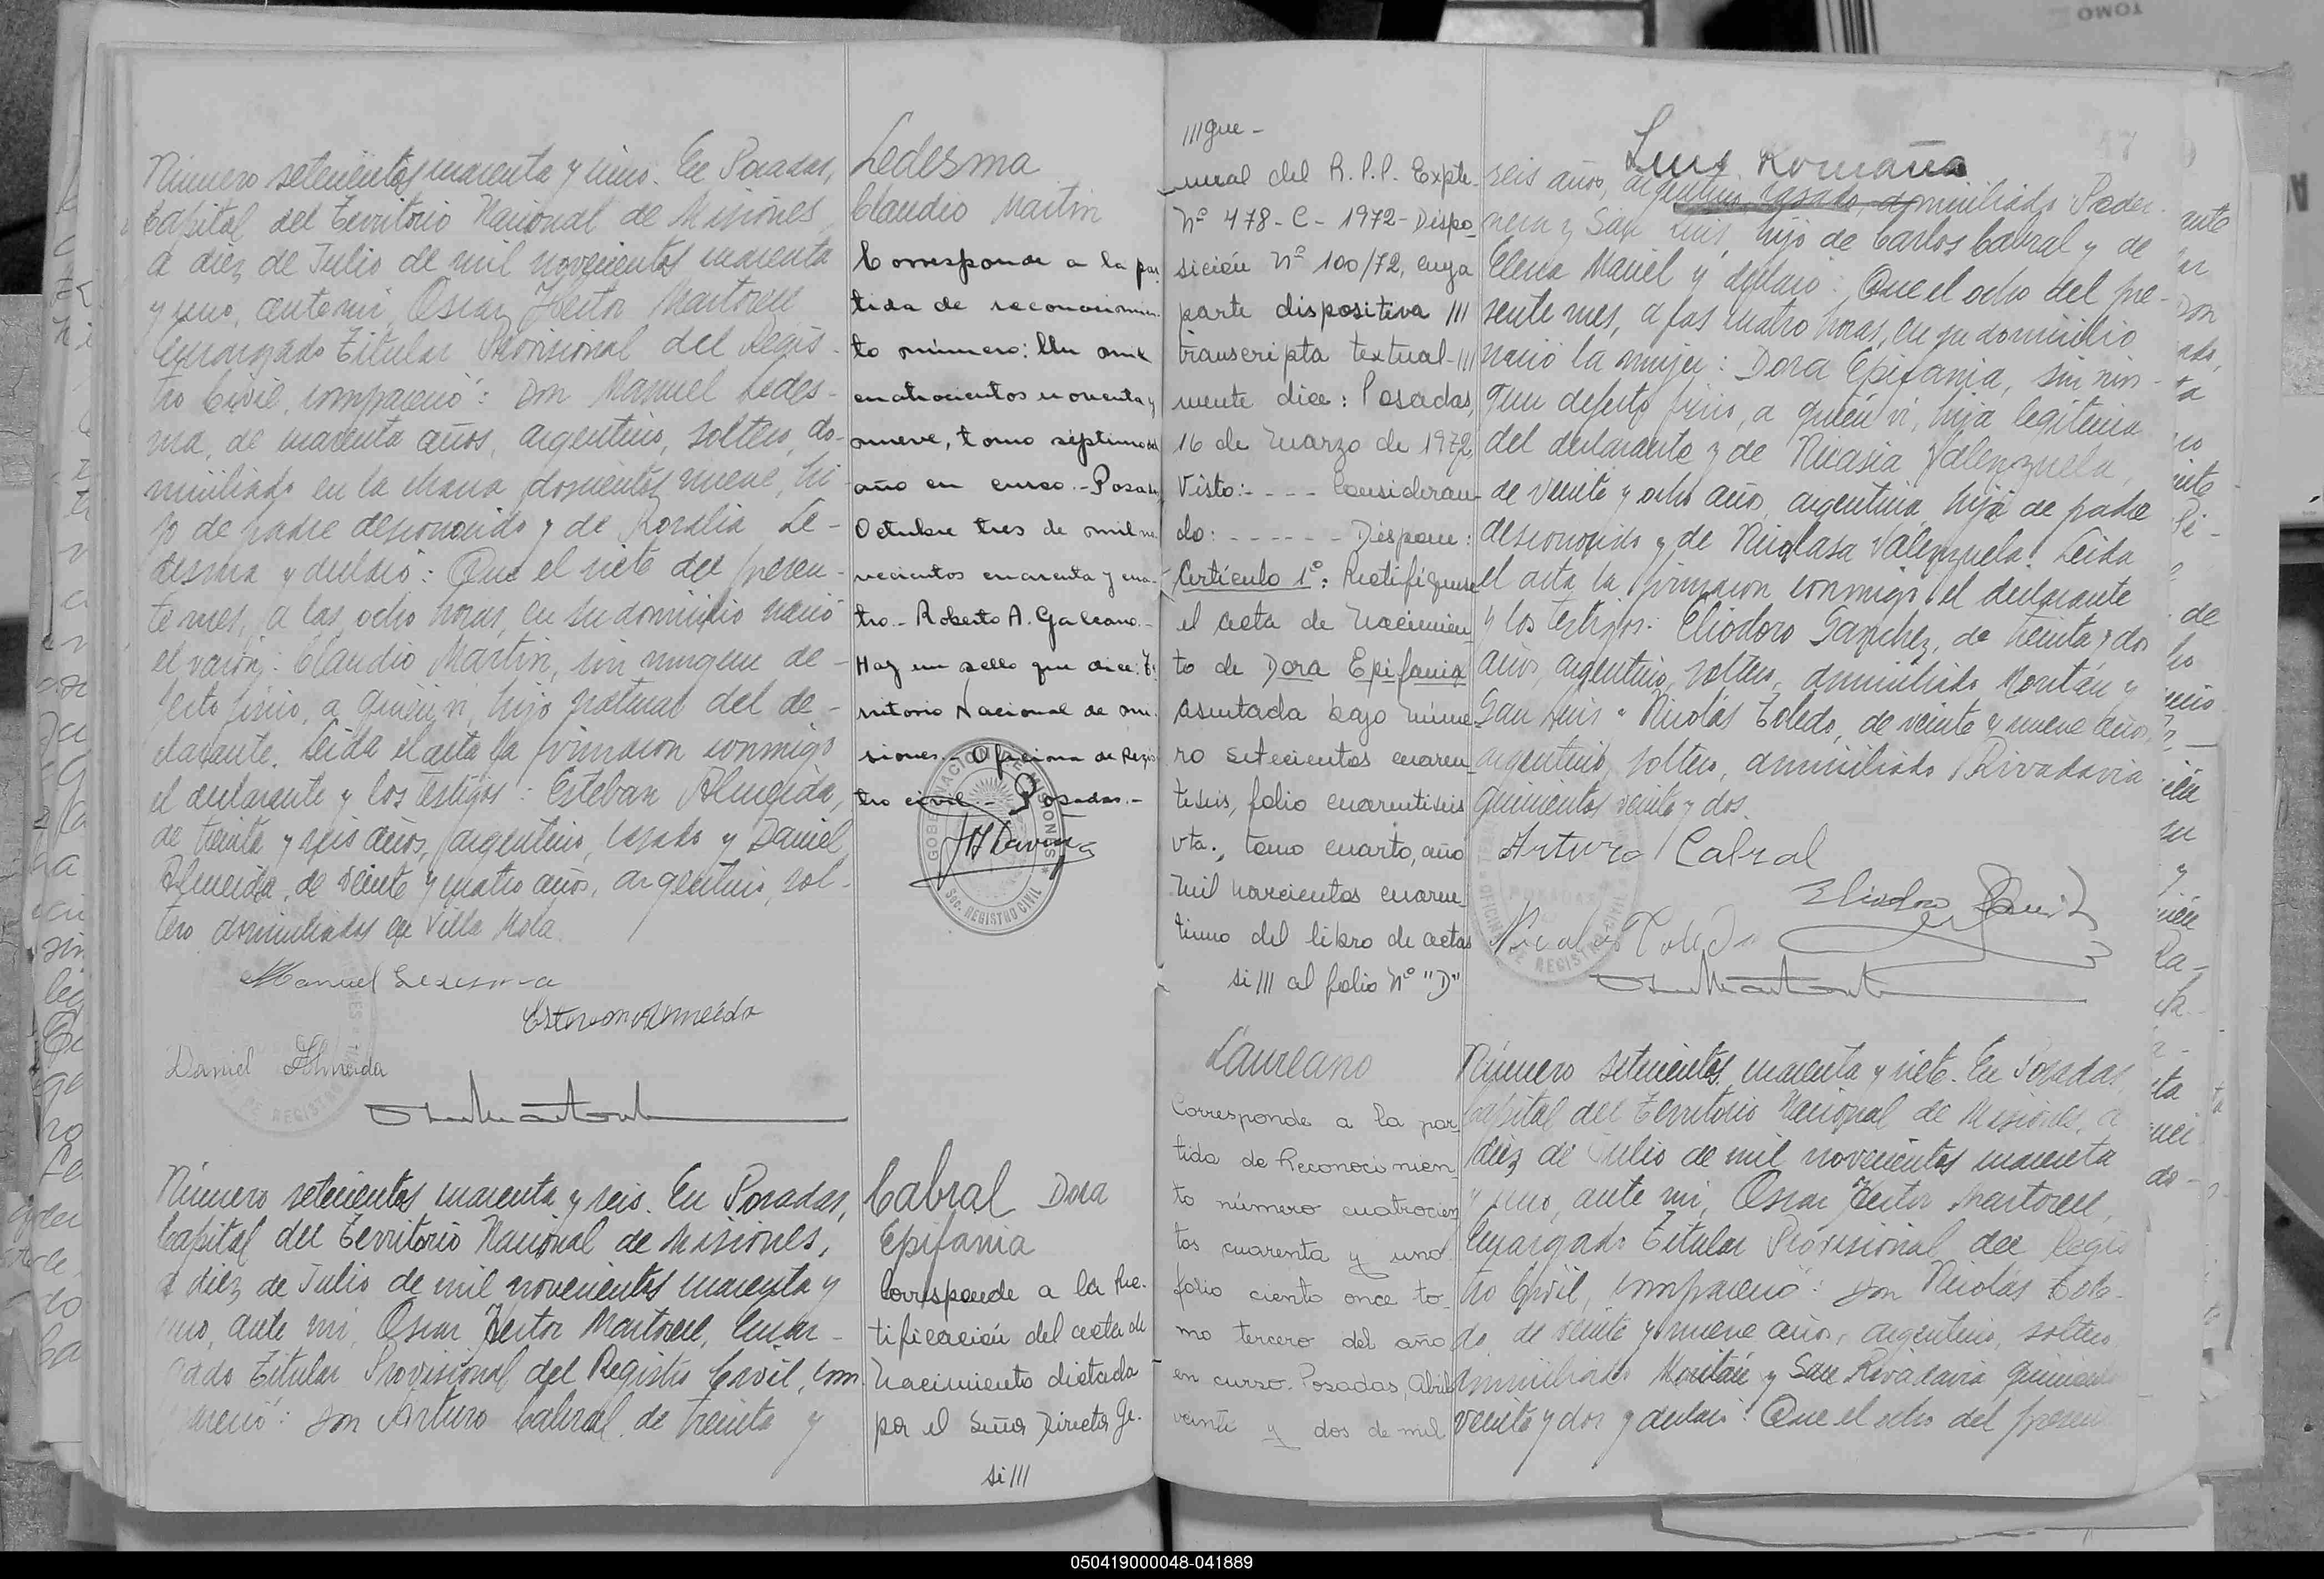 Número setecientos cuarenta y cinco. En Posadas,
Capital del Territorio Nacional de Misiones
a diez de Julio de mil novecientos cuarenta
y uno, ante mi, Oscar Hector Martorell
Encargado Titular Provisional del Regis-
tro Civil, compareció: Don Manuel Ledes-
ma, de cuarenta años, argentino, soltero, do-
miciliado en la chacra doscientos nueve, hi-
jo de padre desconocido y de Rosalia Le-
desma y declaró: Que el siete del presen-
te mes, a las ocho horas, en su domicilio nació
el varón: Claudio Martín, sin ningun de-
fecto físico, a quien vi, hijo natural del de-
clarante. Leida el acta la firmaron conmigo
el declarante y los testigos: Esteban Almeida,
de treinta y seis años, argentino, casado y Daniel
Almeida, de veinte y cuatro años, argentino, sol-
tero domiciliados en Villa Mola.
Manuel Ledesma
Esteban Almeida
Daniel Almeida
Número setecientos cuarenta y seis. En Posadas,
Capital del Territorio Nacional de Misiones,
a diez de Julio de mil novecientos cuarenta y
uno, ante mi, Oscar Hector Martorell, Encar-
gado Titular Provisional del Registro Civil, com-
pareció: Don Arturo Cabral, de treinta y
Ledesma
Claudio Martin
Corresponde a la par-
tida de reconocimien-
to número: Un mil
cuatrocientos noventa y
nueve, tomo séptimo del
año en curso.- Posadas,
Octubre tres de mil no-
vecientos cuarenta y cua-
tro.- Roberto A. Galeano.-
Hay un sello que dice: Te-
rritorio Nacional de Mi-
siones.- Oficina de Regis-
tro civil - Posadas.-
GOBERNACION MISIONES
SEC. REGISTRO CIVIL
Cabral Dora
Epifania
Corresponde a la Rec-
tificación del acta de
Nacimiento dictada
por el Señor Director Ge-
si///
///gue-
neral del R.P.P. Expte.
Nº 478-C-1972-Dispo-
sición Nº 100/72, cuya
parte dispositiva ///
transcripta textual-///
mente dice: Posadas,
16 de Marzo de 1972
Visto:---- Consideran-
do:------ Dispone:
Artículo 1º: Rectifíquese
el acta de Nacimien-
to de Dora Epifania
asentada bajo núme-
ro setecientos cuaren-
tiseis, folio cuarentiseis
vta., tomo cuarto, año
mil novecientos cuaren-
tiuno del libro de actas
si/// al folio Nº "D"
Laureano
Corresponde a la par-
tida de Reconocimien-
to número cuatrocien-
tos cuarenta y uno
folio ciento once to-
mo tercero del año
en curso. Posadas, Abril
veinte y dos de mil
47
Luis Romaña
seis años, argentino, casado, domiciliado Peder-
nera y San Luis, hijo de Carlos Cabral y de
Elena Maciel y declaró: Que el ocho del pre-
sente mes, a las cuatro horas, en su domicilio
nació la mujer: Dora Epifania, sin nin-
gun defecto físico, a quien vi, hija legitima
del declarante y de Nicasia Valenzuela,
de veinte y ocho años, argentina, hija de padre
desconocido y de Nicolasa Valenzuela. Leida
el acta la firmaron conmigo el declarante
y los testigos: Eliodoro Sanchez, de treinta y dos
años, argentino, soltero, domiciliado Moritán y
San Luis y Nicolás Toledo, de veinte y nueve años,
argentino, soltero, domiciliado Rivadavia
quinientos veinte y dos.
Arturo Cabral
Número setecientos cuarenta y siete. En Posadas,
Capital del Territorio Nacional de Misiones, a
diez de Julio de mil novecientos cuarenta
y uno, ante mi, Oscar Hector Martorell,
Encargado Titular Provisional del Regis-
tro Civil, compareció: Don Nicolás Tole-
do, de veinte y nueve años, argentino, soltero
domiciliado Moritán y San Rivadavia quinientos
veinte y dos y declaró: Que el ocho del presen
TOMO
050419000048-041889